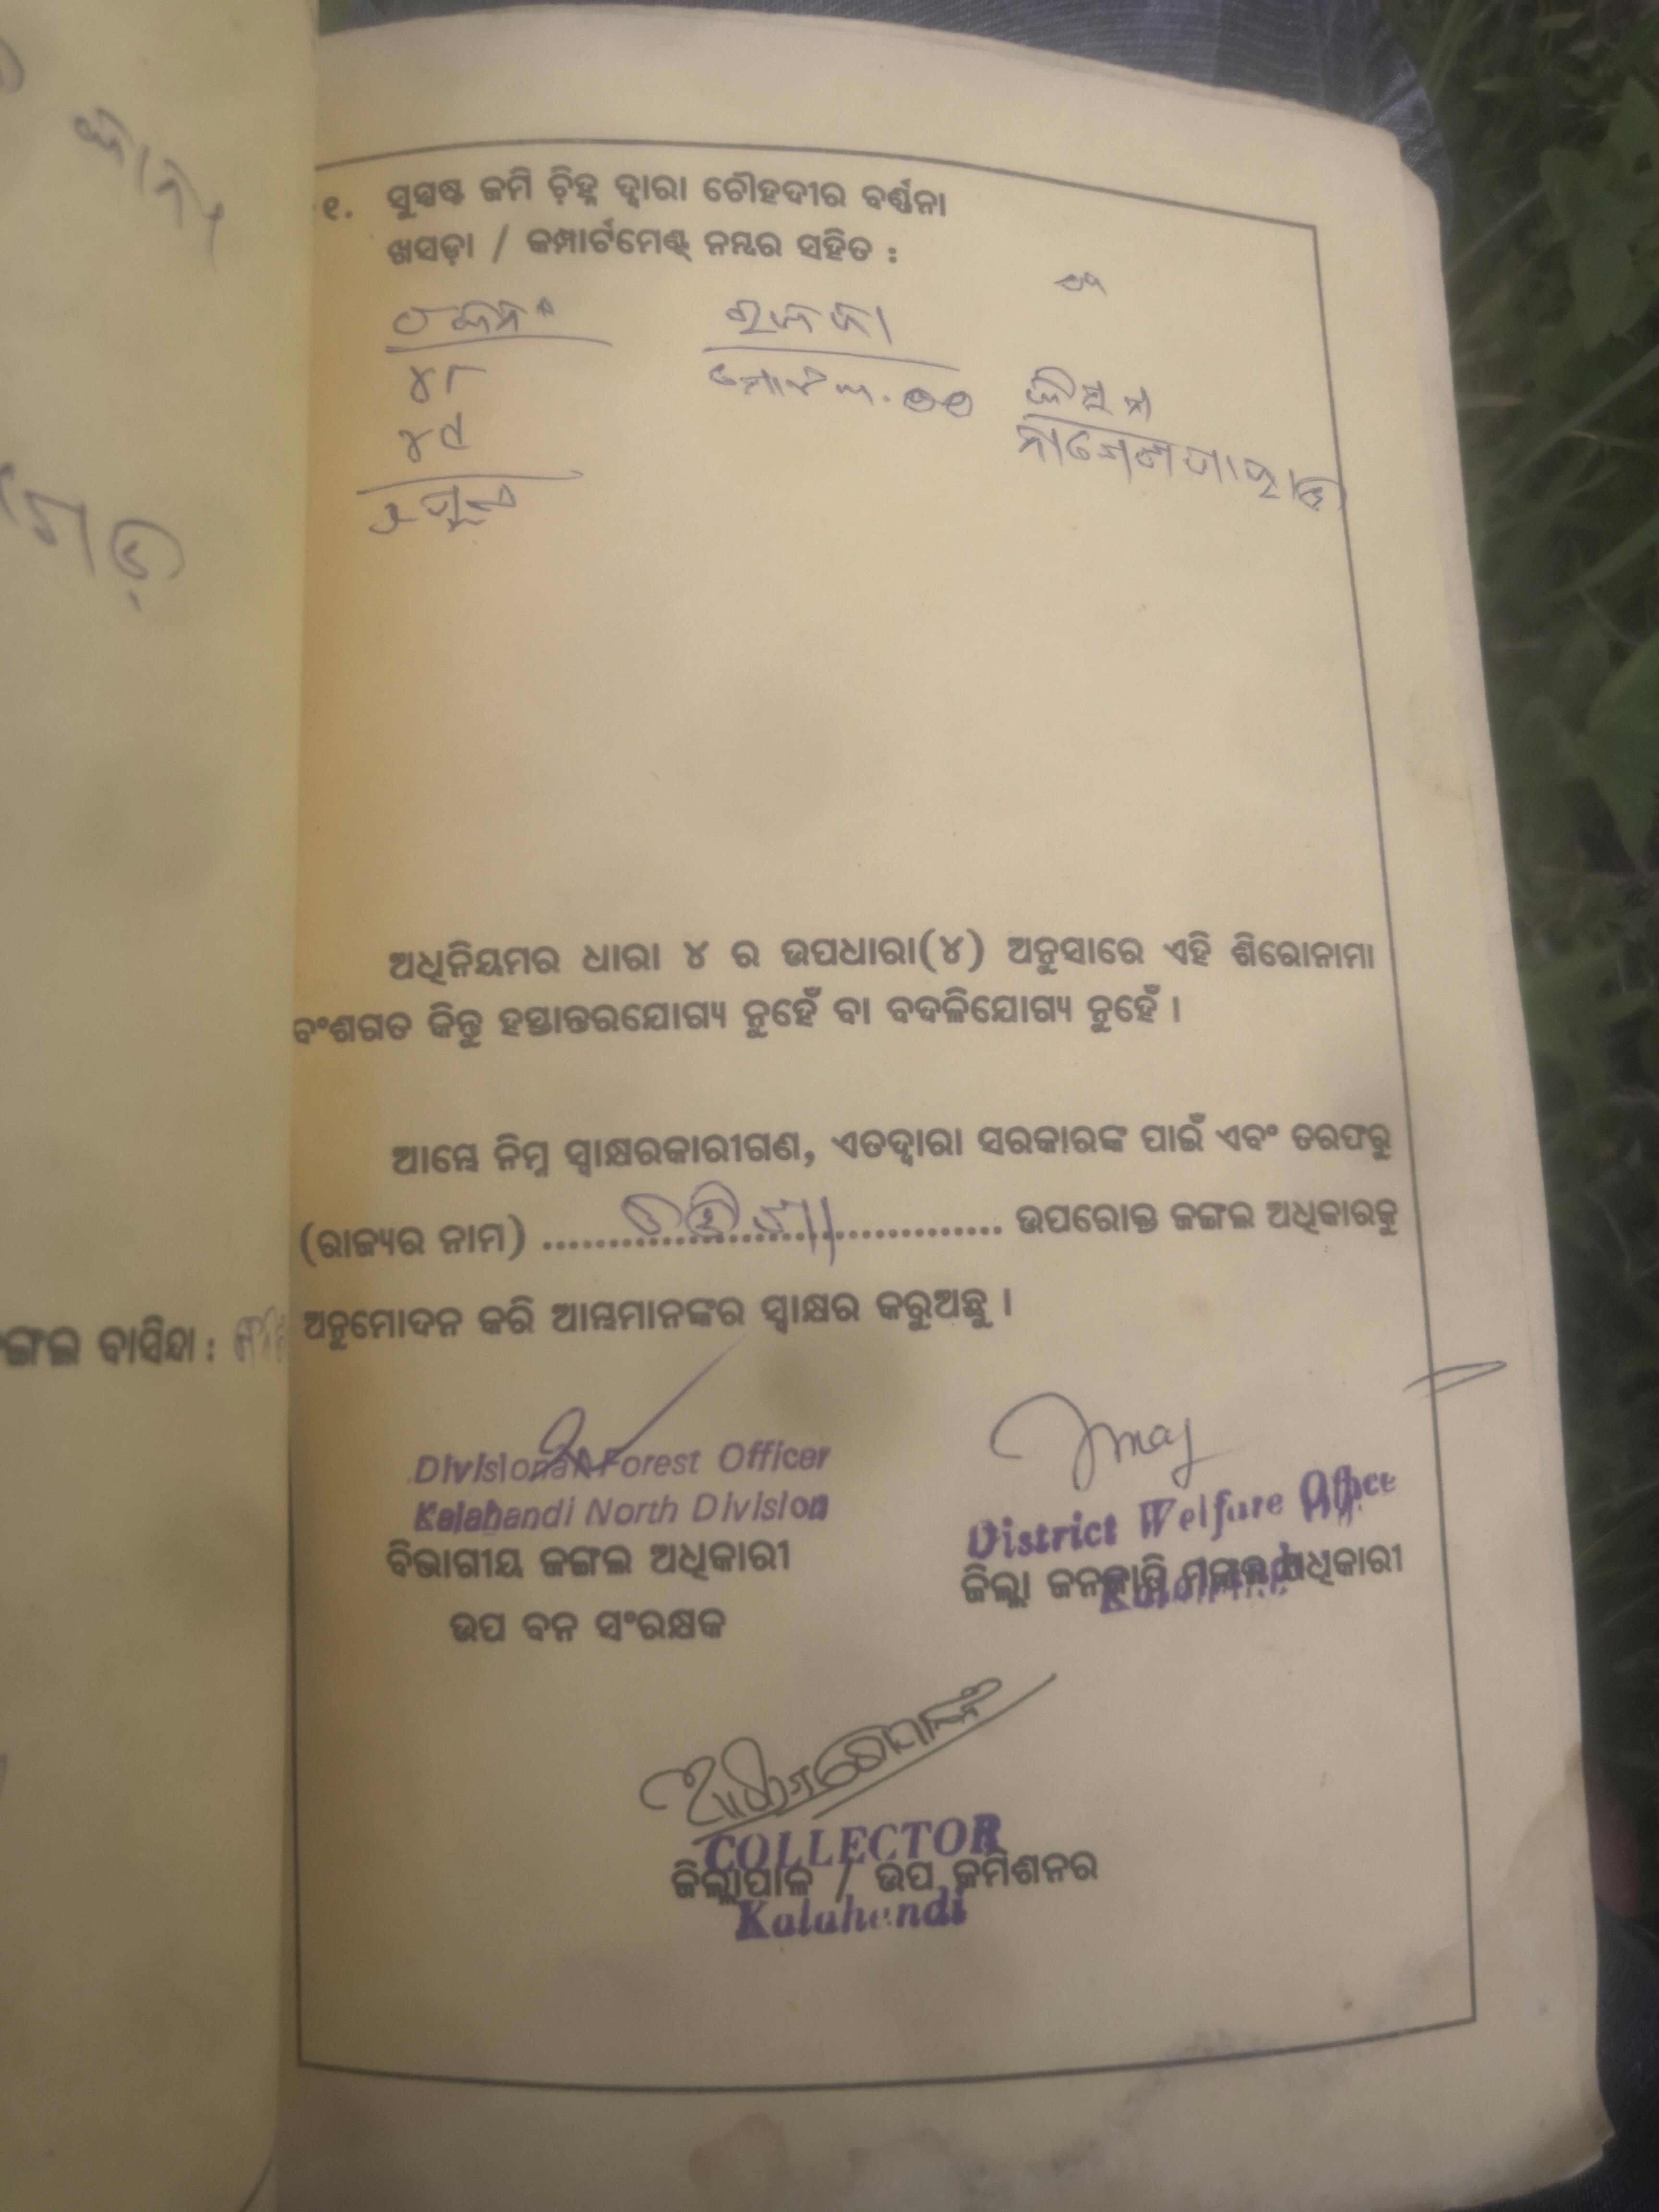 ୧. ସୁସ୍ପଷ୍ଟ ଜମି ଚ଼ିହ୍ନ ଦ୍ଵାରା ଚୌହଦୀର ବର୍ଣ୍ଣନା
ଖସଡ଼ା / କମ୍ପାର୍ଟମେଣ୍ଟ୍ ନମ୍ବର ସହିତ :
ରକବା
୪୮
୪୯
କିସମ
ଅଧିନିୟମର ଧାରା ୪ ର ଉପଧାରା(୪) ଅନୁସାରେ ଏହି ଶିରୋନାମା
ବଂଶଗତ କିନ୍ତୁ ହସ୍ତାନ୍ତରଯୋଗ୍ୟ ନୁହେଁ ବା ବଦଳିଯୋଗ୍ୟ ନୁହେଁ ।
ଆମ୍ଭେ ନିମ୍ନ ସ୍ୱାକ୍ଷରକାରୀଗଣ, ଏତଦ୍ୱାରା ସରକାରଙ୍କ ପାଇଁ ଏବଂ ତରଫରୁ
(ରାଜ୍ୟର ନାମ) ........ଓଡ଼ିଶା........ ଉପରୋକ୍ତ ଜଙ୍ଗଲ ଅଧିକାରକୁ
ଅନୁମୋଦନ କରି ଆମ୍ଭମାନଙ୍କର ସ୍ୱାକ୍ଷର କରୁଅଛୁ ।
ଙ୍ଗଲ ବାସିନ୍ଦା :
Divisional Forest Officer
Kalahandi North Division
ବିଭାଗୀୟ ଜଙ୍ଗଲ ଅଧିକାରୀ
ଉପ ବନ ସଂରକ୍ଷକ
District Welfare Office
ଜିଲ୍ଲା ଜନଜାତି ମଙ୍ଗଳ ଅଧିକାରୀ
COLLECTOR
ଜିଲ୍ଲାପାଳ / ଉପ କମିଶନର
Kalahandi